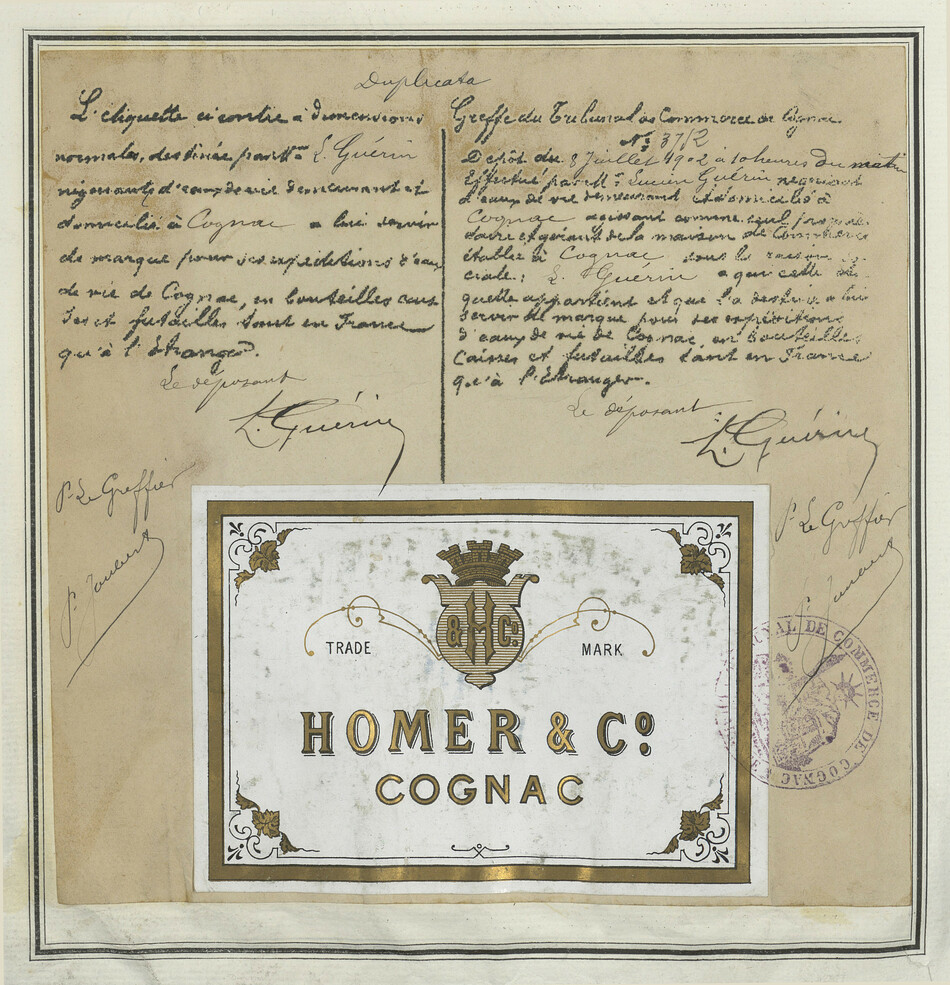 Duplicata
L'étiquette ci contre à dimensions
normales, destinée par Mr L. Guérin
négociant d'eaux de vie demeurant et
domicilié à Cognac a lui servir
de marque pour ses expéditions d'eaux
de vie de Cognac, en bouteilles cais
ses et futailles tant en France
qu'à l'Etranger.
Le déposant
L. Guérin
Pr Le Greffier
Greffe du Tribunal de Commerce de Cognac
No 37/2
Dépôt du 8 Juillet 1902 à 10 heures du matin
Effectué par Mr Lucien Guérin négociant
d'eaux de vie demeurant et domicilié à
Cognac agissant comme seul proprié
taire et gérant de la maison de Commerce
établie à Cognac sous la raison so
ciale: L. Guérin a qui cette éti
quette appartient et que l'a destinée a lui
servir de marque pour ses expéditions
d'eaux de vie de Cognac, en bouteilles
Caisses et futailles tant en France
qu'à l'Etranger.
Le déposant
L. Guérin
Pr Le Greffier
H & Co
TRADE MARK
HOMER & Co
COGNAC
TRIBUNAL DE COMMERCE DE COGNAC